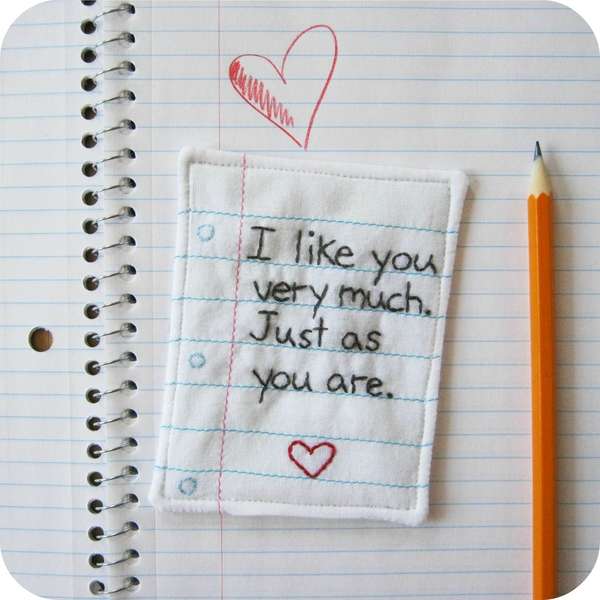 I like you
very much.
Just as
you are.